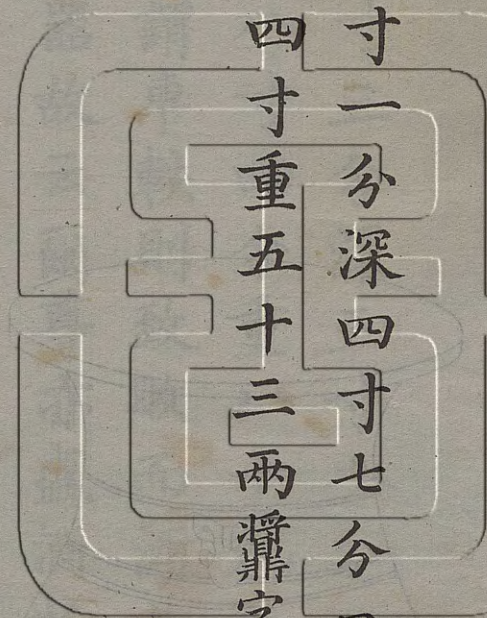 寸一分深四寸七分
四寸重五十三兩䵼字